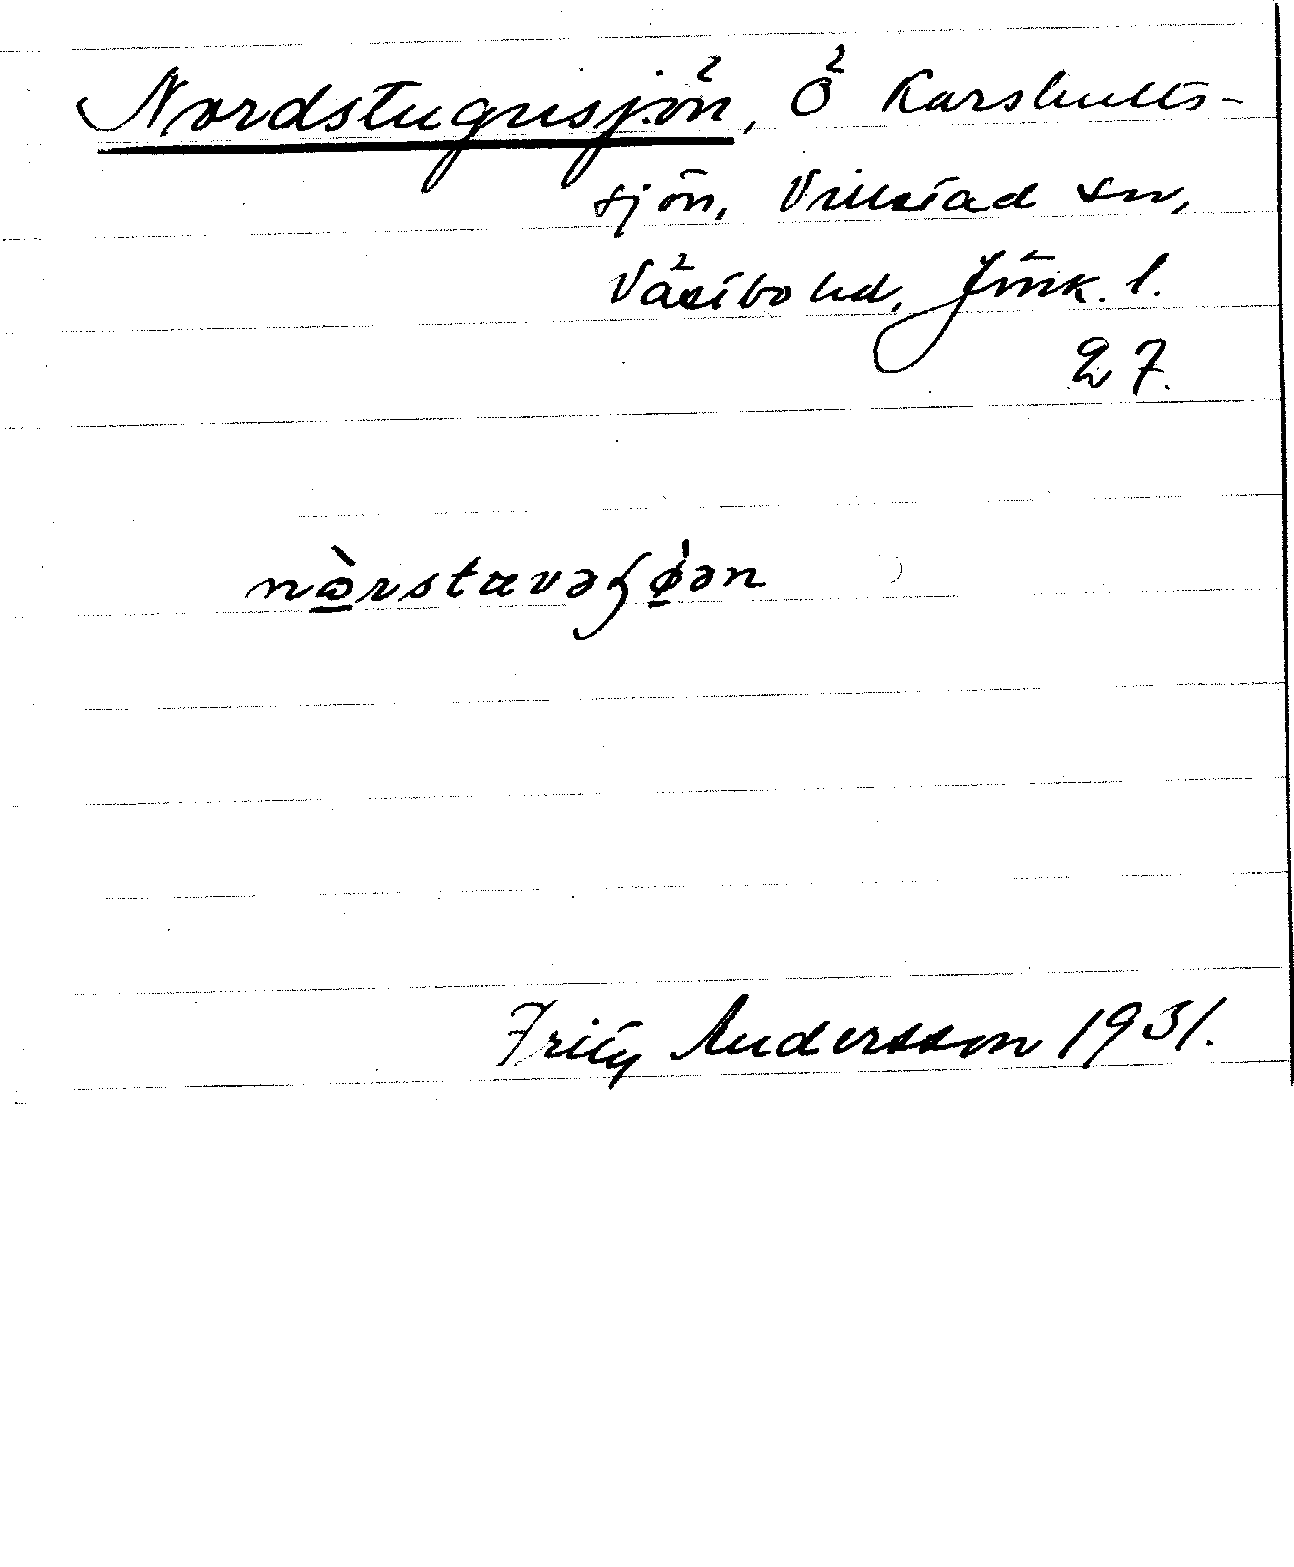 Nordstugusjön, Ö Karshults-
sjön, Villstad sn,
Västbo hd, Jönk. l.
27.
nɷ̀rstævəʃǿən
Fritz Andersson 1931.